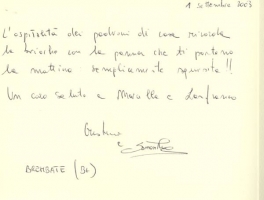 1 settembre 2003
L'ospitalità dei padroni di casa
la brioche con la panna che ti portano
la mattina semplicemente squisita!!
Un caro saluto a Marcella e Lanfranco
Gustavo
e
BREMBATE (BG)